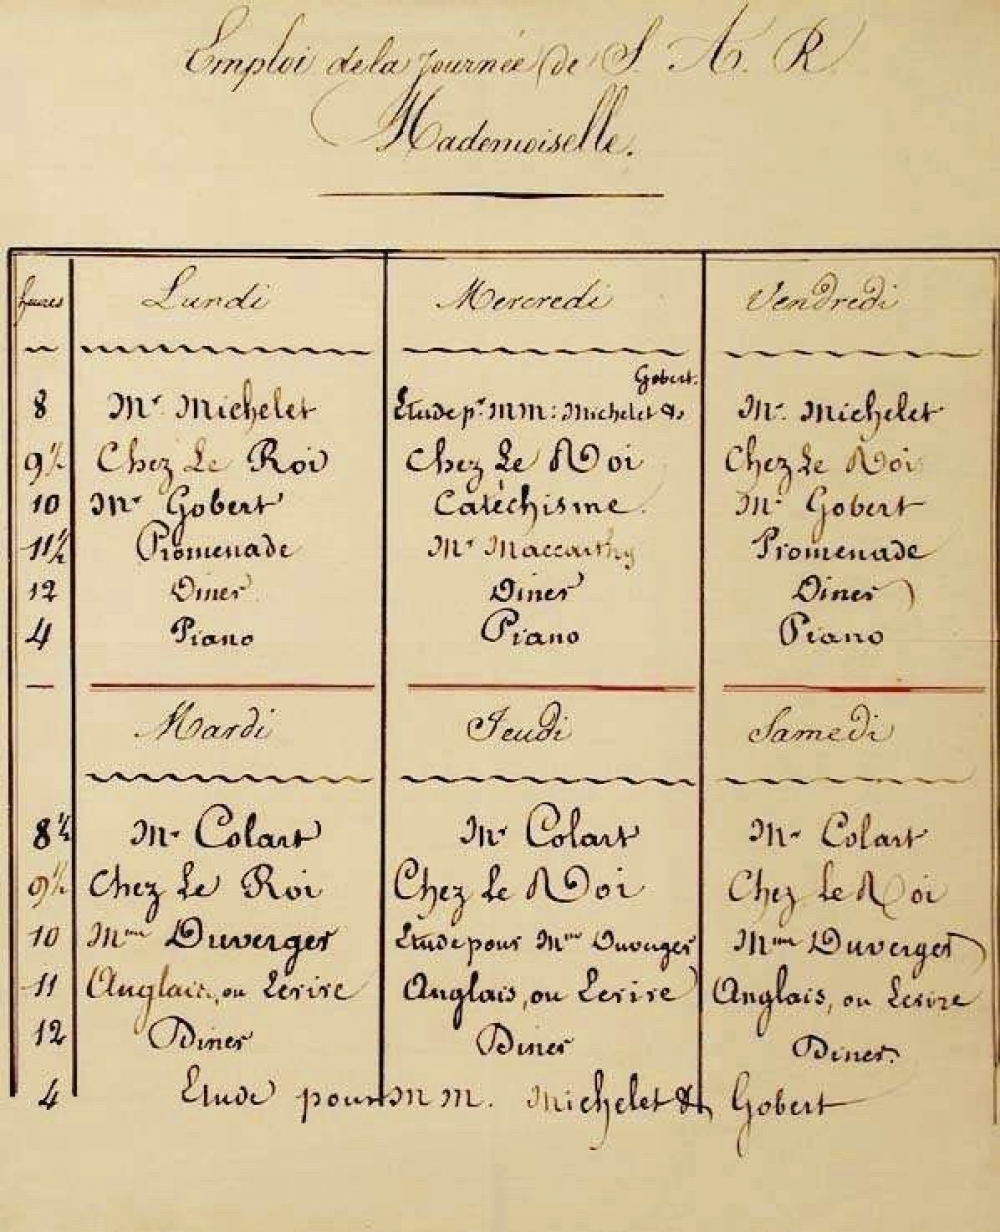 Emploi de la Journée de S. A. R.
Mademoiselle.
heures Lundi Mercredi Vendredi
Gobert.
8 Mr. Michelet Etude pr. MM: Michelet & Mr. Michelet
9½ Chez Le Roi Chez Le Roi Chez Le Roi
10 Mr Gobert Catéchisme. Mr Gobert
11½ Promenade Mr Maccarthy Promenade
12 Diner Diner Diner
4 Piano Piano Piano
Mardi Jeudi Samedi
8¼ Mr Colart Mr Colart Mr Colart
9½ Chez Le Roi Chez Le Roi Chez Le Roi
10 Mme Duverger Etude pour Mme Duverger Mme Duverger
11 Anglais, ou Ecrire Anglais, ou Ecrire Anglais, ou Ecrire
12 Diner Diner Diner.
4 Etude pour MM. Michelet & Gobert